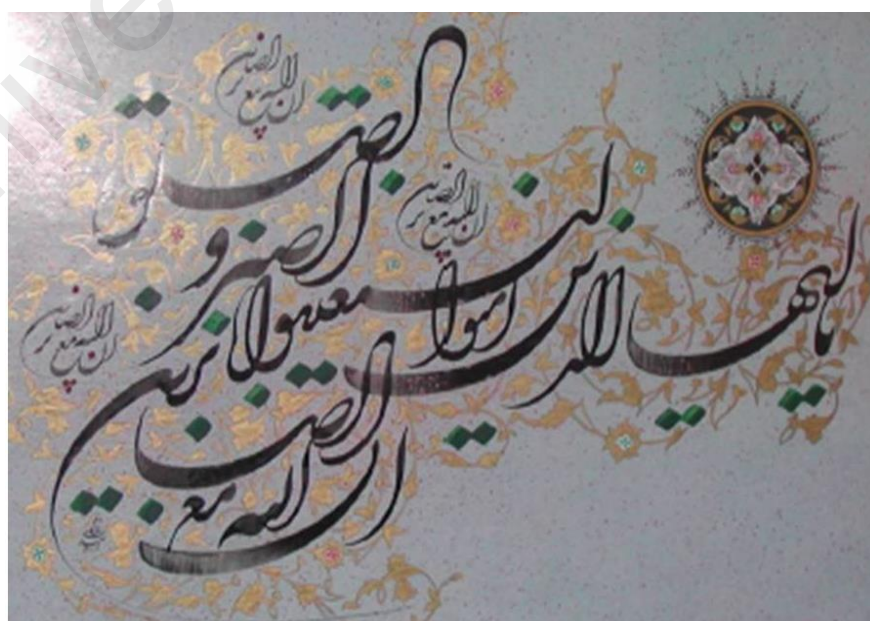 یا ایها الذین امنوا استعینوا بالصبر و الصلوة
ان الله مع الصابرین
ان الله مع الصابرین
ان الله مع الصابرین
ان الله مع الصابرین